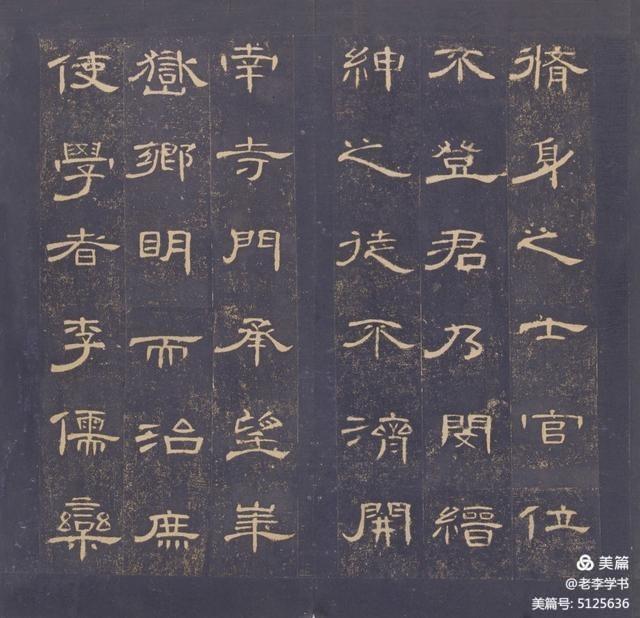 脩身之士官位
不登君乃閔縉
紳之徒不濟開
南寺門承望華
嶽鄉眀而治庶
使學者李儒欒
美篇
@老李学书
美篇号: 5125636